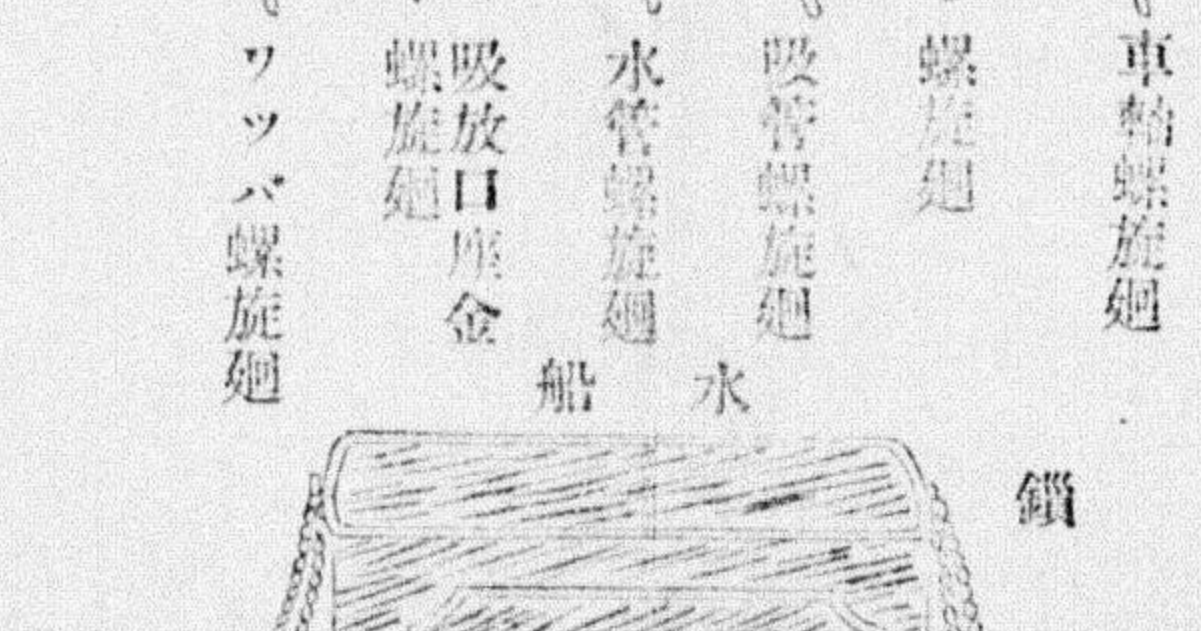 車軸螺旋廻
螺旋廻
吸管螺旋廻
水管螺旋廻
吸放口座金
螺旋廻
ワツパ螺旋廻
水船
鎖